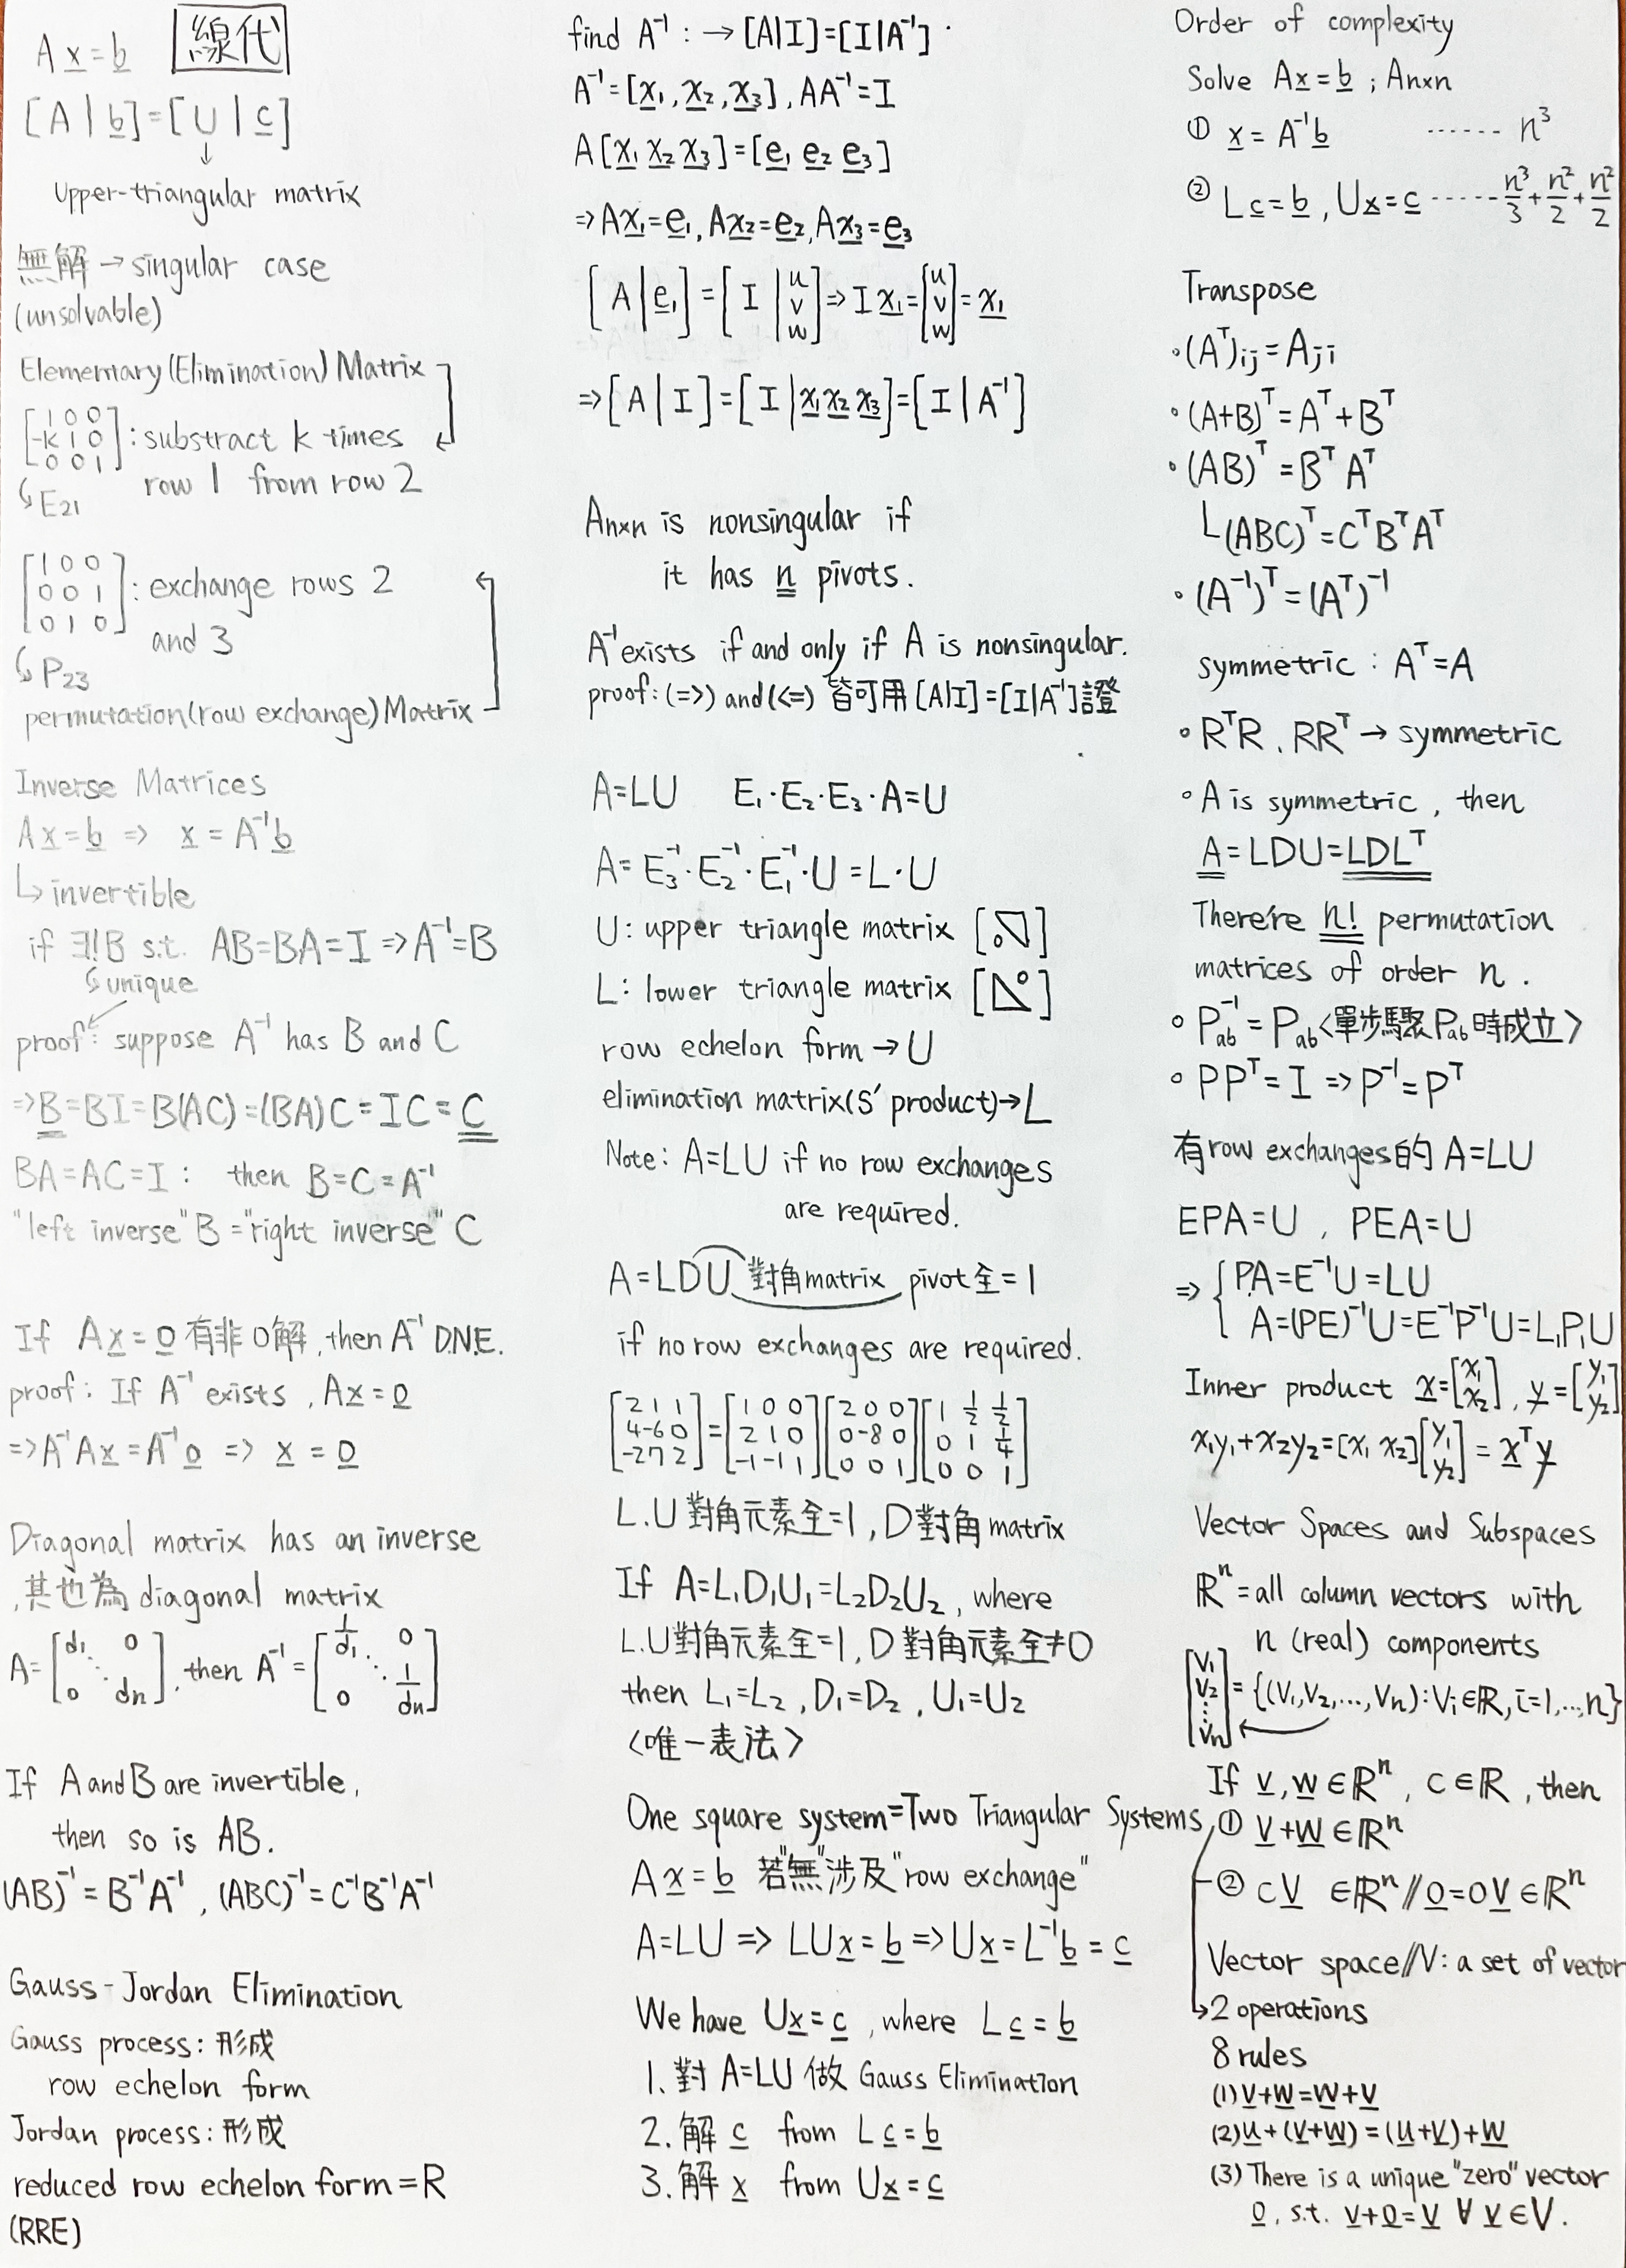 Ax=b 線代
[A|b]=[U|c]
↓
Upper-triangular matrix
無解→singular case
(unsolvable)
Elementary(Elimination)Matrix
[1 0 0
-k 1 0
0 0 1]:substract k times
row 1 from row 2
E₂₁
[1 0 0
0 0 1
0 1 0]:exchange rows 2
and 3
P₂₃
permutation(row exchange)Matrix
Inverse Matrices
Ax=b ⇒ x=A⁻¹b
↳invertible
if ∃!B s.t. AB=BA=I⇒A⁻¹=B
unique
proof: suppose A⁻¹ has B and C
⇒B=BI=B(AC)=(BA)C=IC=C
BA=AC=I: then B=C=A⁻¹
"left inverse"B="right inverse"C
If Ax=0有非0解,then A⁻¹ D.N.E.
proof: If A⁻¹ exists, Ax=0
⇒A⁻¹Ax=A⁻¹0 ⇒ x=0
Diagonal matrix has an inverse
,其也為diagonal matrix
A=[d₁ 0
⋱
0 dₙ], then A⁻¹=[1/d₁ 0
⋱
0 1/dₙ]
If A and B are invertible,
then so is AB.
(AB)⁻¹=B⁻¹A⁻¹, (ABC)⁻¹=C⁻¹B⁻¹A⁻¹
Gauss-Jordan Elimination
Gauss process:形成
row echelon form
Jordan process:形成
reduced row echelon form=R
(RRE)
find A⁻¹:→[A|I]=[I|A⁻¹]
A⁻¹=[x₁,x₂,x₃],AA⁻¹=I
A[x₁ x₂ x₃]=[e₁ e₂ e₃]
⇒Ax₁=e₁,Ax₂=e₂,Ax₃=e₃
[A|e₁]=[I|u
v
w]⇒Ix₁=[u
v
w]=x₁
⇒[A|I]=[I|x₁x₂x₃]=[I|A⁻¹]
Anxn is nonsingular if
it has n pivots.
A⁻¹exists if and only if A is nonsingular.
proof:(⇒) and(⇐) 皆可用[A|I]=[I|A⁻¹]證
A=LU E₁·E₂·E₃·A=U
A=E₃⁻¹·E₂⁻¹·E₁⁻¹·U=L·U
U: upper triangle matrix
L: lower triangle matrix
row echelon form→U
elimination matrix(s' product)→L
Note: A=LU if no row exchanges
are required.
A=LDU 對角matrix pivot全=1
if no row exchanges are required.
[2 1 1
4 -6 0
-2 7 2]=[1 0 0
2 1 0
-1 -1 1][2 0 0
0 -8 0
0 0 1][1 1/2 1/2
0 1 1/4
0 0 1]
L.U對角元素全=1,D對角matrix
If A=L₁D₁U₁=L₂D₂U₂, where
L.U對角元素全=1,D對角元素全≠0
then L₁=L₂, D₁=D₂, U₁=U₂
<唯一表法>
One square system=Two Triangular Systems
Ax=b 若"無"涉及"row exchange"
A=LU⇒LUx=b⇒Ux=L⁻¹b=c
We have Ux=c, where Lc=b
1.對A=LU做Gauss Elimination
2.解c from Lc=b
3.解x from Ux=c
Order of complexity
Solve Ax=b;Anxn
① x=A⁻¹b ······ n³
② Lc=b,Ux=c ····· n³/3+n²/2+n²/2
Transpose
∘(Aᵀ)ij=Aji
∘(A+B)ᵀ=Aᵀ+Bᵀ
∘(AB)ᵀ=BᵀAᵀ
└(ABC)ᵀ=CᵀBᵀAᵀ
∘(A⁻¹)ᵀ=(Aᵀ)⁻¹
symmetric: Aᵀ=A
∘RᵀR、RRᵀ→symmetric
∘A is symmetric, then
A=LDU=LDLᵀ
There're n! permutation
matrices of order n.
∘Pab⁻¹=Pab<單步驟Pab時成立>
∘PPᵀ=I⇒P⁻¹=Pᵀ
有row exchanges的A=LU
EPA=U, PEA=U
⇒{PA=E⁻¹U=LU
A=(PE)⁻¹U=E⁻¹P⁻¹U=L₁P₁U
Inner product x=[x₁
x₂], y=[y₁
y₂]
x₁y₁+x₂y₂=[x₁ x₂][y₁
y₂]=xᵀy
Vector Spaces and Subspaces
ℝⁿ=all column vectors with
n (real) components
[v₁
v₂
⋮
vn]={(v₁,v₂,...,vn):vi∈ℝ,i=1,...,n}
If v,w∈ℝⁿ, c∈ℝ, then
① v+w∈ℝⁿ
② cv ∈ℝⁿ//0=0v∈ℝⁿ
Vector space//V: a set of vector
↳2 operations
8 rules
(1)v+w=w+v
(2)u+(v+w)=(u+v)+w
(3) There is a unique "zero" vector
0, s.t. v+0=v ∀ v∈V.